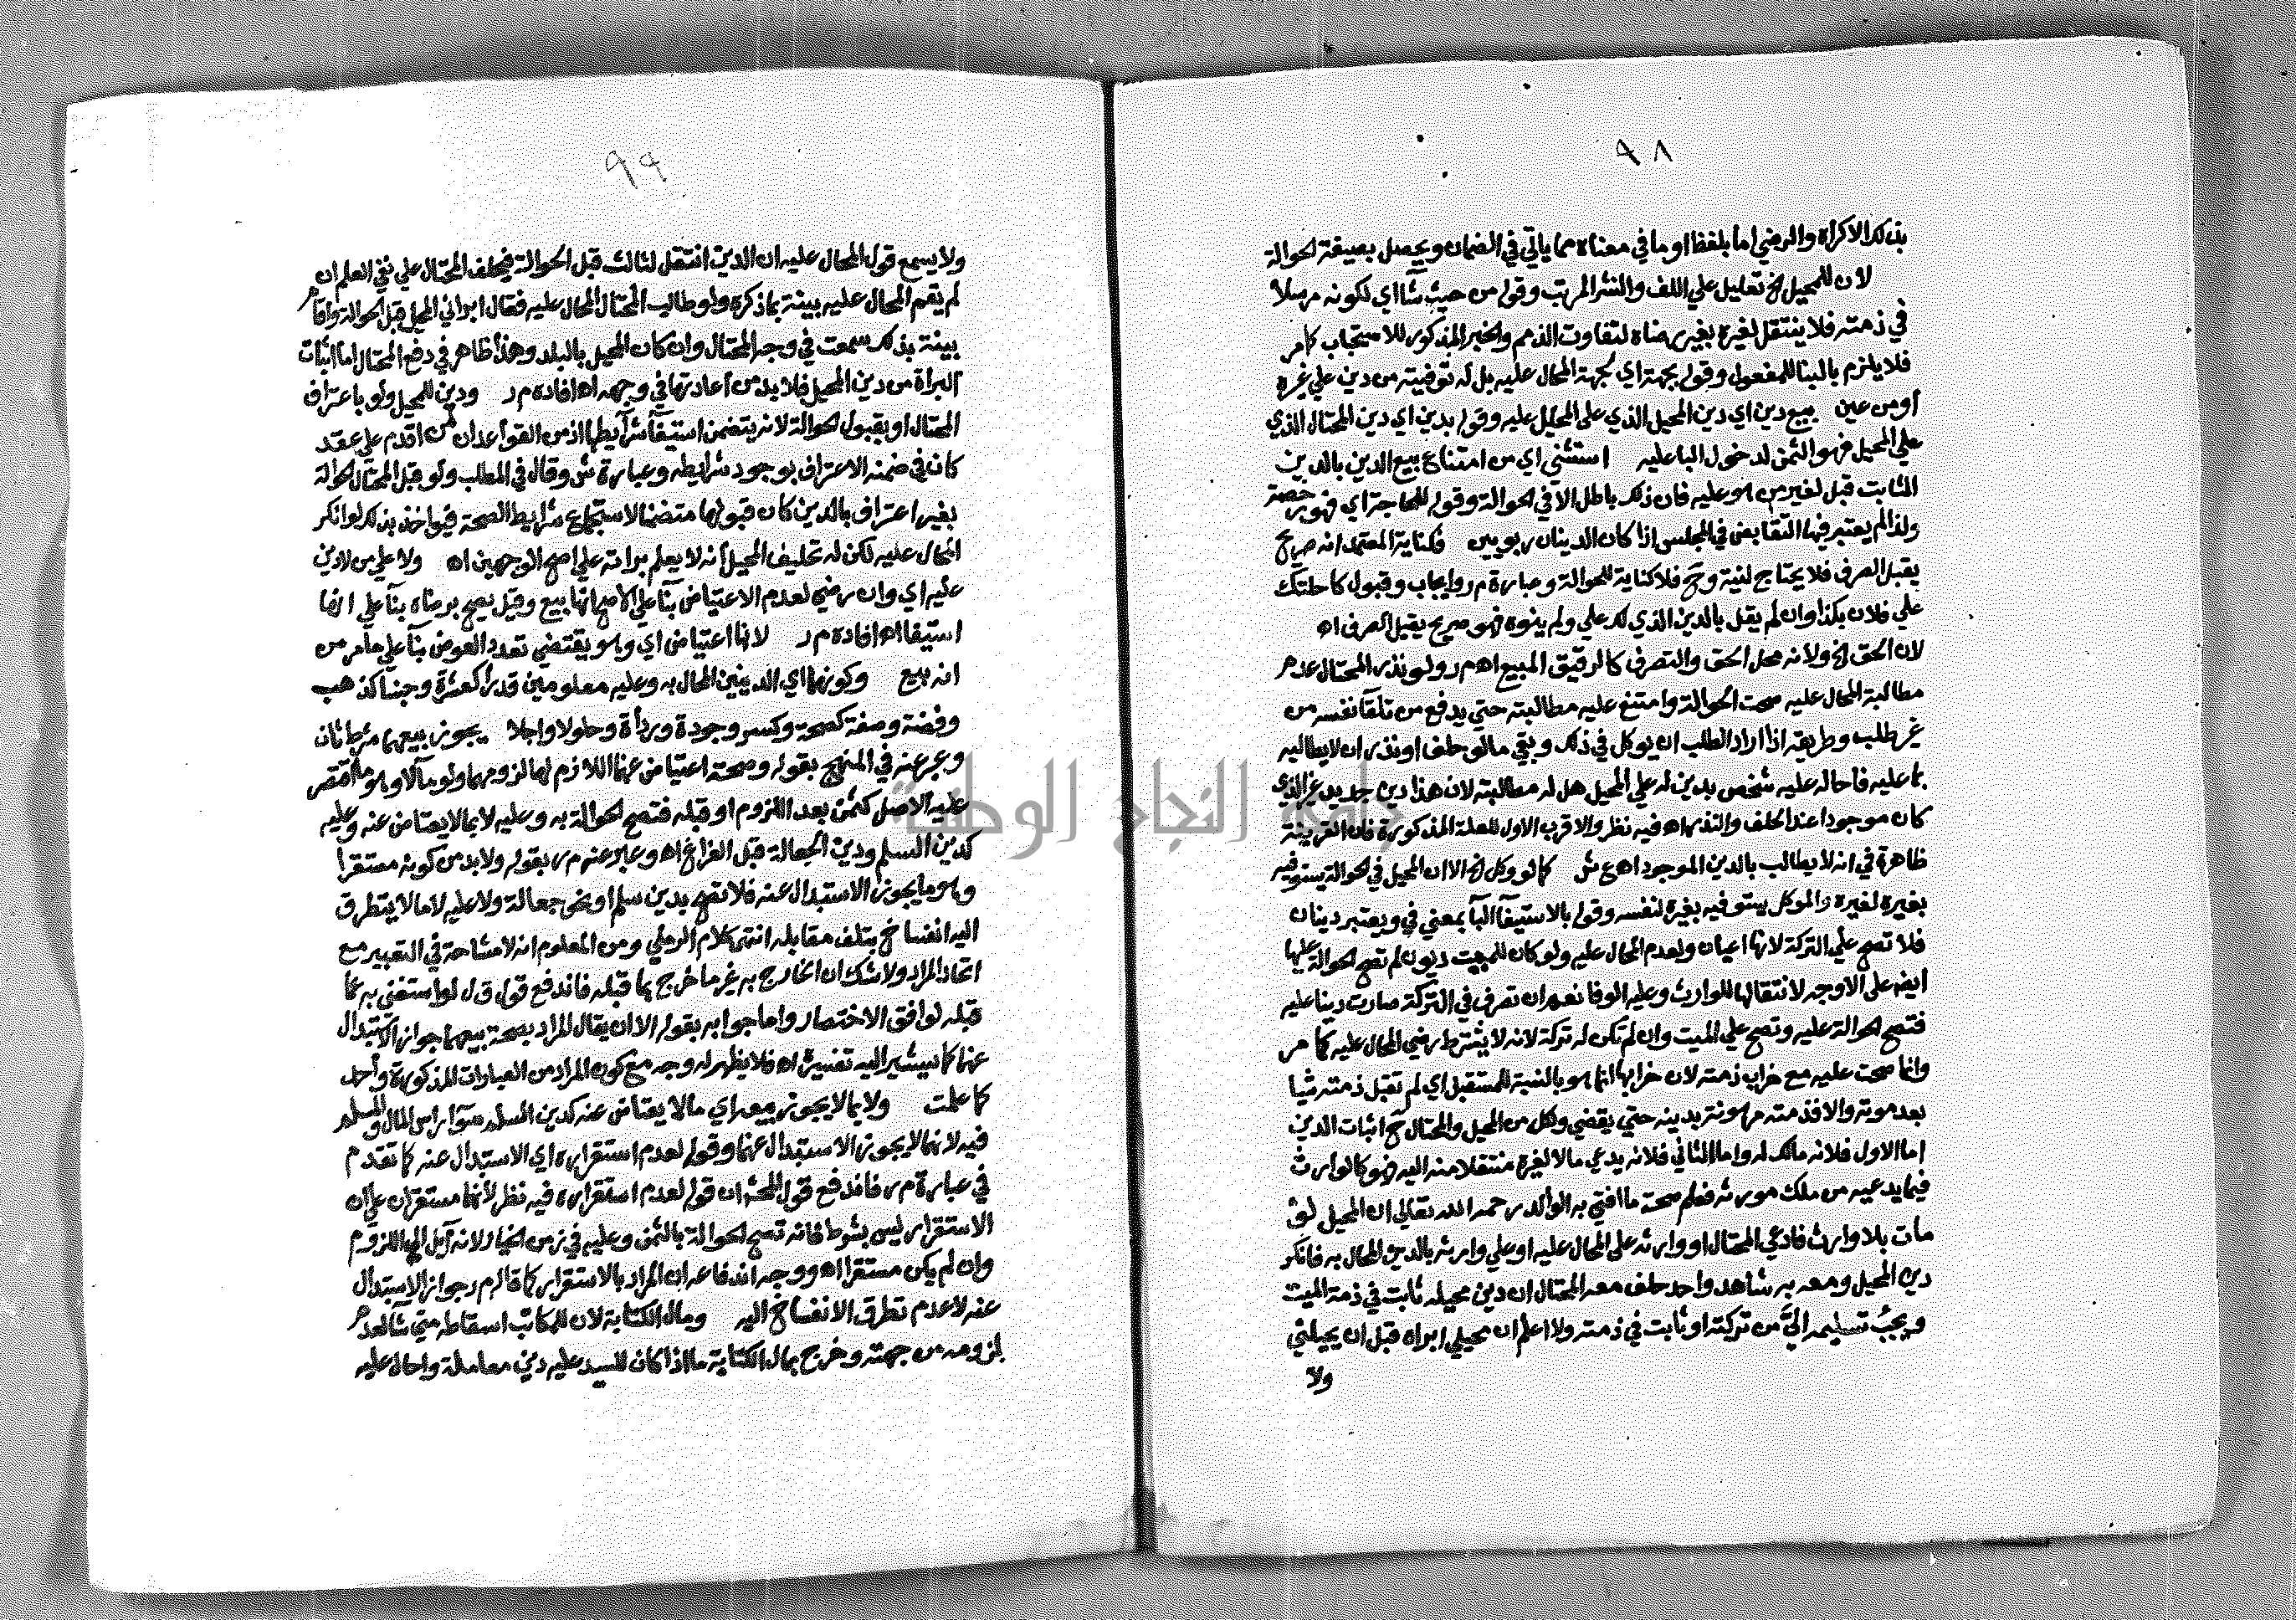 ٩٨
بذلك الاكراه والرضي اما بلفظ او ما في معناه مما ياتي في الضمان ويحصل بصيغة الحوالة
لان للمحيل الخ تعليل علي اللف والنشر المرتب وقوله من حيث شآ اي لكونه مرسلا
في ذمته فلا ينتقل لغيره بغير رضاه لتفاوت الذمم والخبر المذكور للاستحباب كامر
فلا يلزم بالبنا للمفعول وقوله بجهة اي لجهة المحال عليه بل له توفيته من دين علي غيره
او من عين بيع دين اي دين المحيل الذي على المحال عليه وقوله بدين اي دين المحتال الذي
علي المحيل فهو الثمن لدخول البا عليه استثني اي من امتناع بيع الدين بالدين
الثابت قبل لغير من هو عليه فان ذلك باطل الا في الحوالة وقوله للحاجة اي فهو رخصة
ولذا لم يعتبر فيها التقابض في المجلس اذا كان الدينان ربويين فكناية المعتمد انه صريح
يقبل الصرف فلا يحتاج لنية وح فلا كناية للحوالة وعبارة م ر وايجاب وقبول كاحلتك
علي فلان بكذا وان لم يقل بالدين الذي لك علي ولم ينوه فهو صريح يقبل الصرف اه
لان الحق الخ ولانه محل الحق والتصرف كالرقيق المبيع اه م ر ولو نذر المحتال عدم
مطالبة المحال عليه صحت الحوالة وامتنع عليه مطالبته حتي يدفع من تلقآ نفسه من
غير طلب وطريقه اذا اراد الطلب ان يوكل في ذلك وبقي مالو حلف او نذر ان لا يطالبه
بما عليه فاحاله عليه شخص بدين له علي المحيل هل له مطالبته لان هذا دين جديد غير الذي
كان موجودا عند الحلف والنذر اه فيه نظر والاقرب الاول للعلة المذكورة فان القرينة
ظاهرة في انه لا يطالب بالدين الموجود اه ع ش كما لو وكل الخ الا ان المحيل في الحوالة يستوفيه
بغيره لغيره والموكل يستوفيه بغيره لنفسه وقوله بالاستيفآ البآ بمعني في ويعتبر دينان
فلا تصح علي التركة لانها اعيان ولعدم المحال عليه ولو كان للميت ديون لم تصح الحوالة عليها
ايضا على الاوجه لانتقالها للوارث وعليه الوفا نعم ان تصرف في التركة صارت دينا عليه
فتصح الحوالة عليه وتصح علي الميت وان لم تكن له تركة لانه لا يشترط رضي المحال عليه كما مر
وانما صحت عليه مع خراب ذمته لان خرابها انما هو بالنسبة للمستقبل اي لم تقبل ذمته شيا
بعد موته والا فذمته مرهونة بدينه حتي يقضي ولكل من المحيل والمحتال ح اثبات الدين
اما الاول فلانه مالك له واما الثاني فلانه يدعي مالا لغيره منتقلا منه اليه فهو كالوارث
فيما يدعيه من ملك مورثه فعلم صحة ما افتي به الوالد رحمه الله تعالي ان المحيل لو
مات بلا وارث فادعي المحتال او وارثه علي المحال عليه او علي وارثه بالدين المحال به فانكر
دين المحيل ومعه به شاهد واحد حلف معه المحتال ان دين محيله ثابت في ذمة الميت
ويجب تسليمه اليّ من تركته او ثابت في ذمته ولا اعلم ان محيلي ابراه قبل ان يحيلني
ولا
٩٩
ولا يسمع قول المحال عليه ان الدين انتقل لثالث قبل الحوالة فيحلف المحتال علي نفي العلم ان
لم يقم المحال عليه بينة بما ذكره ولو طالب المحتال المحال عليه فقال ابراني المحيل قبل الحوالة واقام
بينة بذلك سمعت في وجه المحتال وان كان المحيل بالبلد وهذا ظاهر في دفع المحتال اما اثبات
البراة من دين المحيل فلا بد من اعادتها في وجهه اه افاده م ر ودين للمحيل ولو باعتراف
المحتال او بقبول الحوالة لانه يتضمن استيفآ شرآيطها اذ من القواعد ان من اقدم علي عقد
كان في ضمنه الاعتراف بوجود شرايطه وعبارة ش وقال في المطلب ولو قبل المحتال الحوالة
بغير اعتراف بالدين كان قبولها متضمنا لاستجماع شرايط الصحة فيواخذ بذلك لو انكر
المحال عليه لكن له تحليف المحيل انه لا يعلم براته علي اصح الوجهين اه ولا علي من لا دين
عليه اي وان رضي لعدم الاعتياض بنآ علي الاصح انها بيع وقيل يصح برضاه بنآ علي انها
استيفا اه افاده م ر لانها اعتياض اي وهو يقتضي تعدد العوض بنآ علي ما مر من
انه بيع وكونهما اي الدينين المحال به وعليه معلومين قدرا كعشرة وجنسا كذهب
وفضة وصفة كصحة وكسر وجودة ورداة وحلولا واجلا يجوز بيعهما شرط ثان
وعبر عنه في المنهج بقوله وصحة اعتياض عنهما اللازم لها لزومهما ولو مآلا وهو ما اقتصر
عليه الاصل كثمن بعد اللزوم او قبله فتصح الحوالة به وعليه لا بما لا يعتاض عنه وعليه
كدين السلم ودين الجعالة قبل الفراغ اه وعبر عنه م ر بقوله ولا بد من كونه مستقرا
وهو ما يجوز الاستبدال عنه فلا تصح بدين سلم او نحو جعالة ولا عليه لا ما لا يتطرق
اليه انفساخ بتلف مقابله انتهي كلام الرملي ومن المعلوم انه لا مشاحة في التعبير مع
اتحاد المراد ولا شك ان الخارج به غير ما خرج بما قبله فاندفع قول ق ل لو استغني به عما
قبله لوافق الاختصار واما جوابه بقوله الا ان يقال المراد بصحة بيعهما جواز الاستبدال
عنهما كما سيشير اليه تفسيره اه فلا يظهر له وجه مع كون المراد من العبارات المذكورة واحد
كما علمت ولا بما لا يجوز بيعه اي مالا يعتاض عنه كدين السلم سوآ راس المال والمسلم
فيه لانهما لا يجوز الاستبدال عنهما وقوله لعدم استقراره اي الاستبدال عنه كما تقدم
في عبارة م ر فاندفع قول المحشي ان قوله لعدم استقراره فيه نظر لانهما مستقران علي ان
الاستقرار ليس بشرط فانه تصح الحوالة بالثمن وعليه في زمن الخيار لانه آيل الي اللزوم
وان لم يكن مستقرا اه ووجه اندفاعه ان المراد بالاستقرار كما قاله م ر جواز الاستبدال
عنه لا عدم تطرق الانفساخ اليه ومال الكتابة لان للمكاتب اسقاطه متي شآ لعدم
لزومه من جهته وخرج بمال الكتابة ما اذا كان للسيد عليه دين معاملة واحال عليه
جامعة النجاح الوطنية